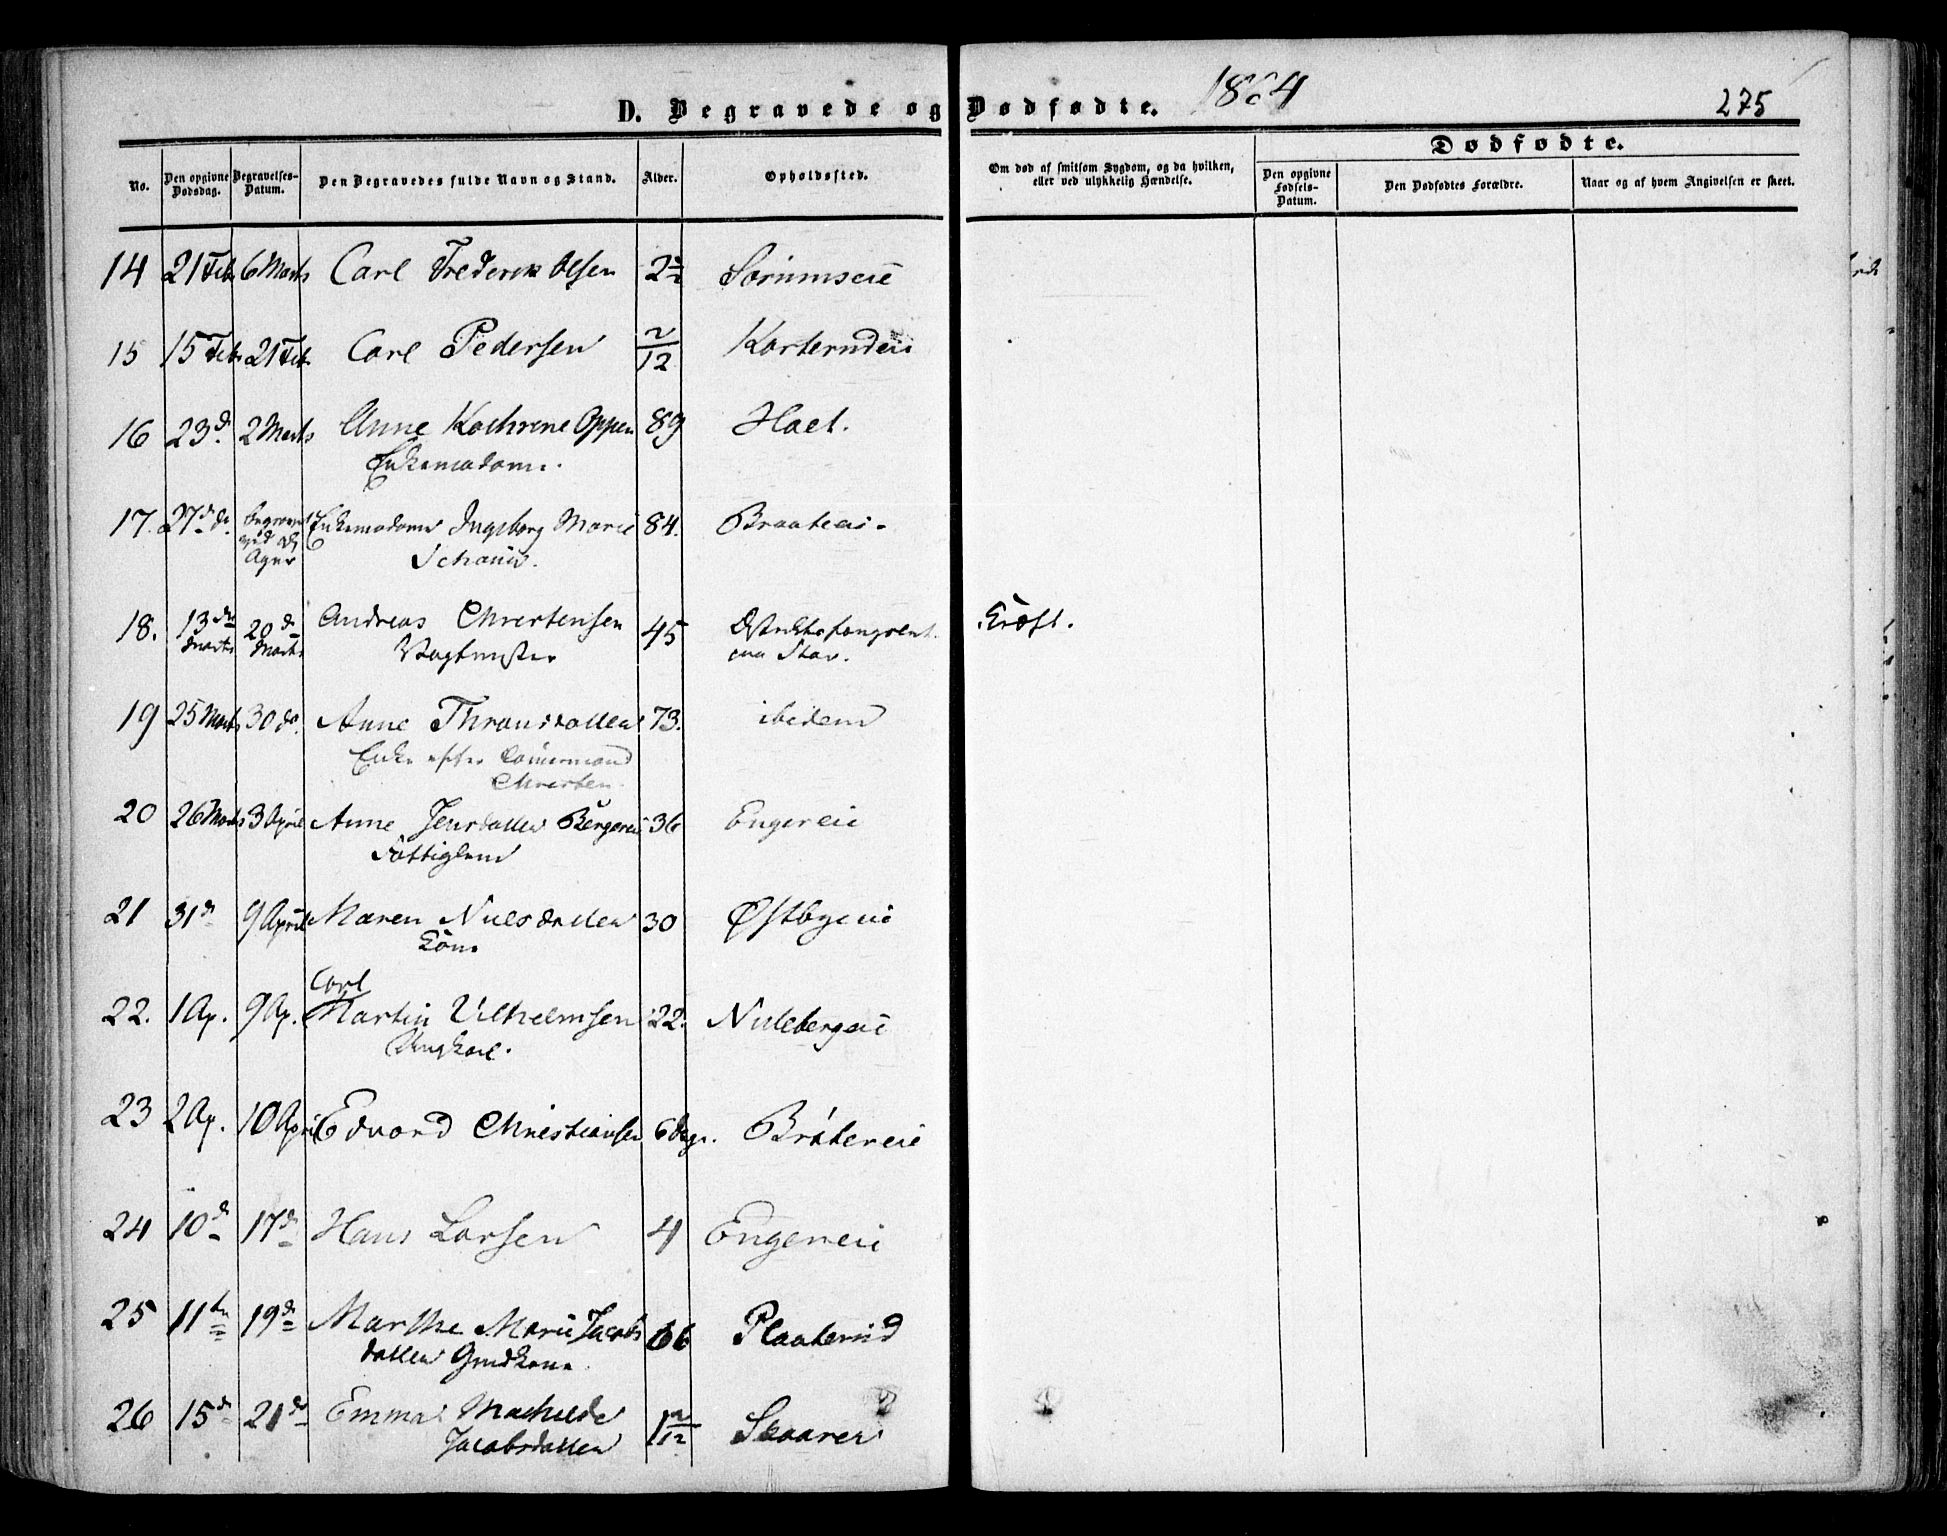 D. Begravede og Dødfødte. 1864
275
No.
Den opgivne Dødsdag.
Begravelses-Datum.
Den Begravedes fulde Navn og Stand.
Alder.
Opholdssted.
Om død af smitsom Sygdom, og da hvilken, eller ved ulykkelig Hændelse.
Dødfødte.
Den opgivne Fødsels-Datum.
Den Dødfødtes Forældre.
Naar og af hvem Angivelsen er skeet.
14 21 Feb 6 Marts Carl Frederik Olsen 2 Sørumseie
15 15 Feb 21 Feb Carl Pedersen 2/12
16 23 d. 2 Marts Anne Kathrine Oppen 89 Hael.
Enkemadame.
17. 27 d. Enkemadame Ingeborg Marie 84. Braateei.
ved
Ager
18. 13 de Marts 20 d Marts Andreas Christensen 45 Distriktsfængslet Kræft.
Vagtmester paa Skar.
19 25 Marts 30 do. Anne Thronsdatter 73. ibidem
Enke efter
Christen
20 26 Marts 3 April Anne Jensdatter Bergerei 36 Engereie
Fattiglem
21 31 d 9 April Maren Nielsdatter 30 Østbyeie
Kone
Carl
22. 1 Ap. 9 Ap. Martin Vilhelmsen 22. Nillebergeie
Ungkarl.
23 2 Ap. 10 April Edvard Christiansen 6 dage. Brøtereie
24 10 d 17 d Hans Larsen 4 Engereie
25 11 te 19 d Marthe Marie Jacobs 66 Plaaterud
datter Grdkone
26 15 d 21 d Emma Mathilde 1 2/12 Skaarer
Jacobsdatter